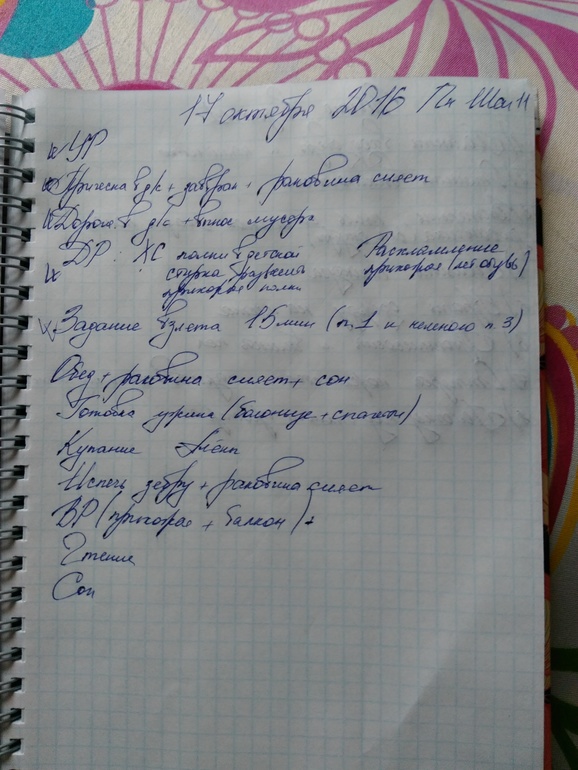 17 октября 2016 Пн Шаг 11
УР
Прическа в д/с + завтрак + раковина сияет
Дорога в д/с + вынос мусора
ДР: ХС полки в детской
стирка развесить
прихорая полки
Расхламление
прихорая (лет обувь)
Задание взлета 15 мин (п. 1 и немного п 3)
Обед + раковина сияет + сон
Готовка ужина (болоньезе + спагетти)
Купание
Испечь зебру + раковина сияет
ВР (прихорая + балкон)
Чтение
Сон